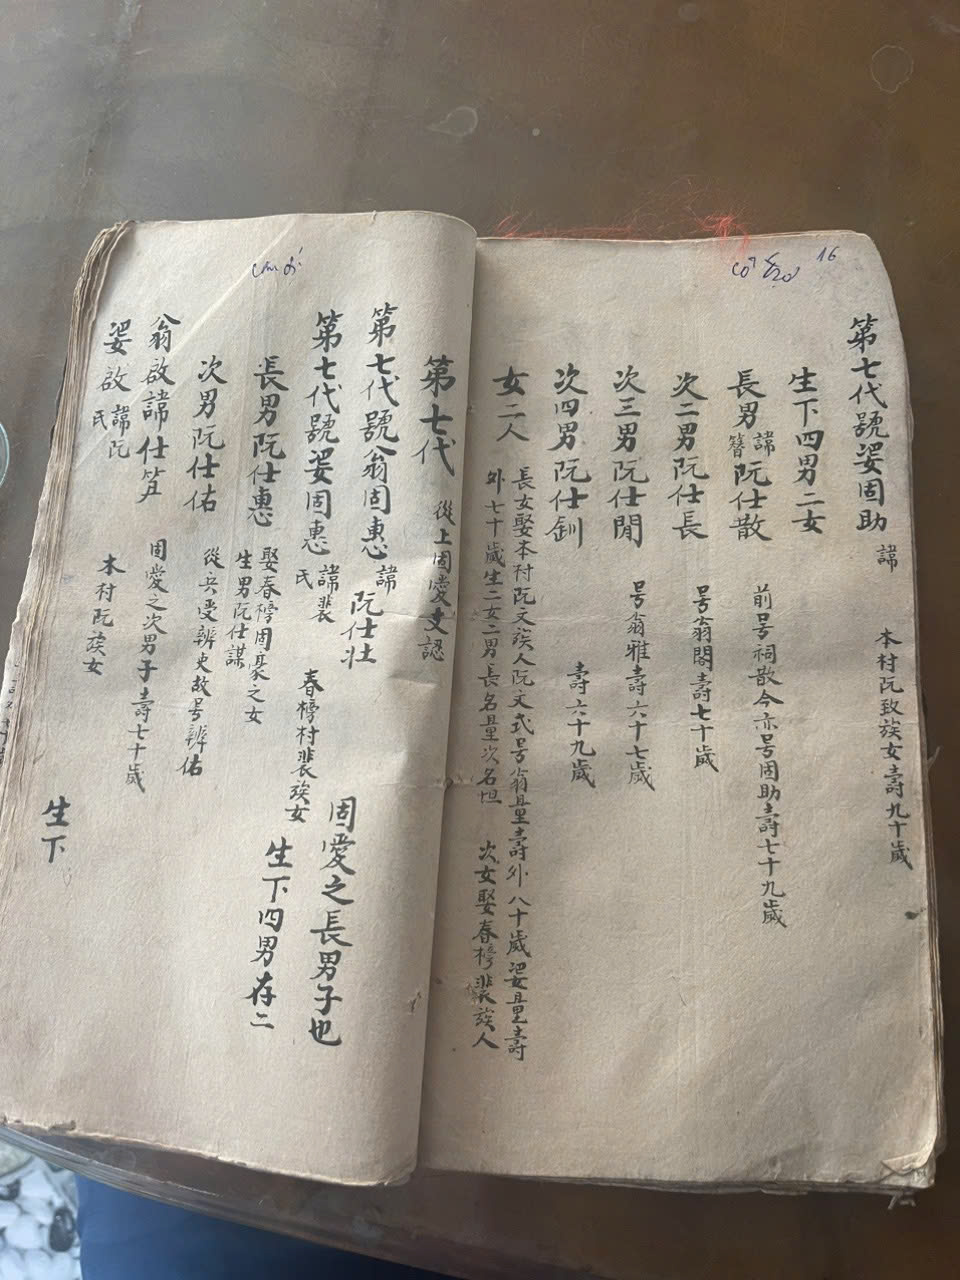 16
第七代號婆固助 諱 本村阮致族女壽九十歲
生下四男二女
長男諱簪阮仕散 前号祠散今亦号固助壽七十九歲
次二男阮仕長 号翁閣壽七十歲
次三男阮仕閒 号翁雅壽六十七歲
次四男阮仕釧 壽六十九歲
女二人 長女娶本村阮文族人阮文式号翁量壽外八十歲婆量壽
外七十歲生二女二男長名量次名怛 次女娶春樗裴族人
第七代 從上固愛支認
第七代號翁固惠 諱阮仕壯 固愛之長男子也
第七代號婆固惠 諱裴氏 春樗村裴族女 生下四男存二
長男阮仕惠 娶春樗固豪之女
生男阮仕謀
次男阮仕佑 從兵受辨吏故号辨佑
翁啟諱仕笇 固愛之次男子壽七十歲
婆啟諱阮氏 本村阮族女
生下